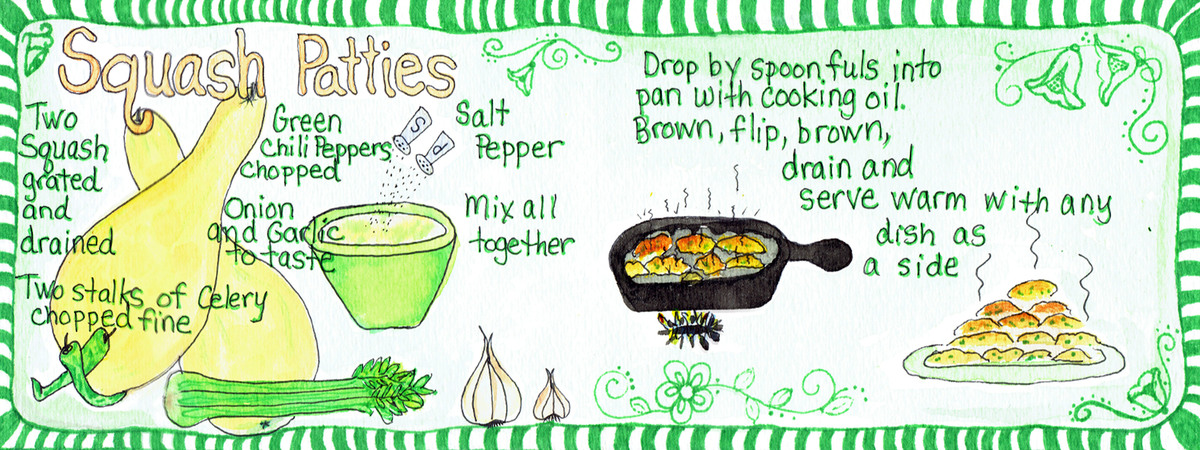 Squash Patties
Two
Squash
grated
and
drained
Two stalks of Celery
chopped fine
Green
Chili Peppers
Chopped
Onion
and Garlic
to taste
S
P
Salt
Pepper
Mix all
together
Drop by spoonfuls into
pan with cooking oil.
Brown, flip, brown,
drain and
serve warm with any
dish as
a side